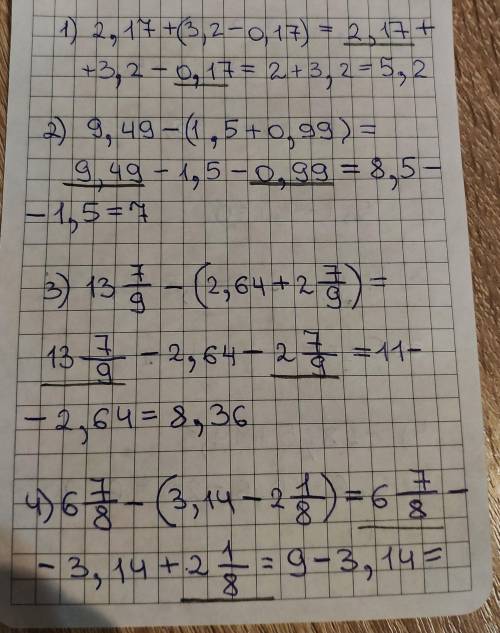 1) 2,17+(3,2-0,17) = 2,17+
+3,2-0,17=2+3,2=5,2
2) 9,49-(1,5+0,99)=
9,49-1,5-0,99=8,5-
-1,5=7
3) 13 7/9 - (2,64+2 7/9)=
13 7/9 - 2,64 - 2 7/9 =11-
-2,64=8,36
4) 6 7/8 - (3,14-2 1/8)=6 7/8 -
-3,14+2 1/8 =9-3,14=